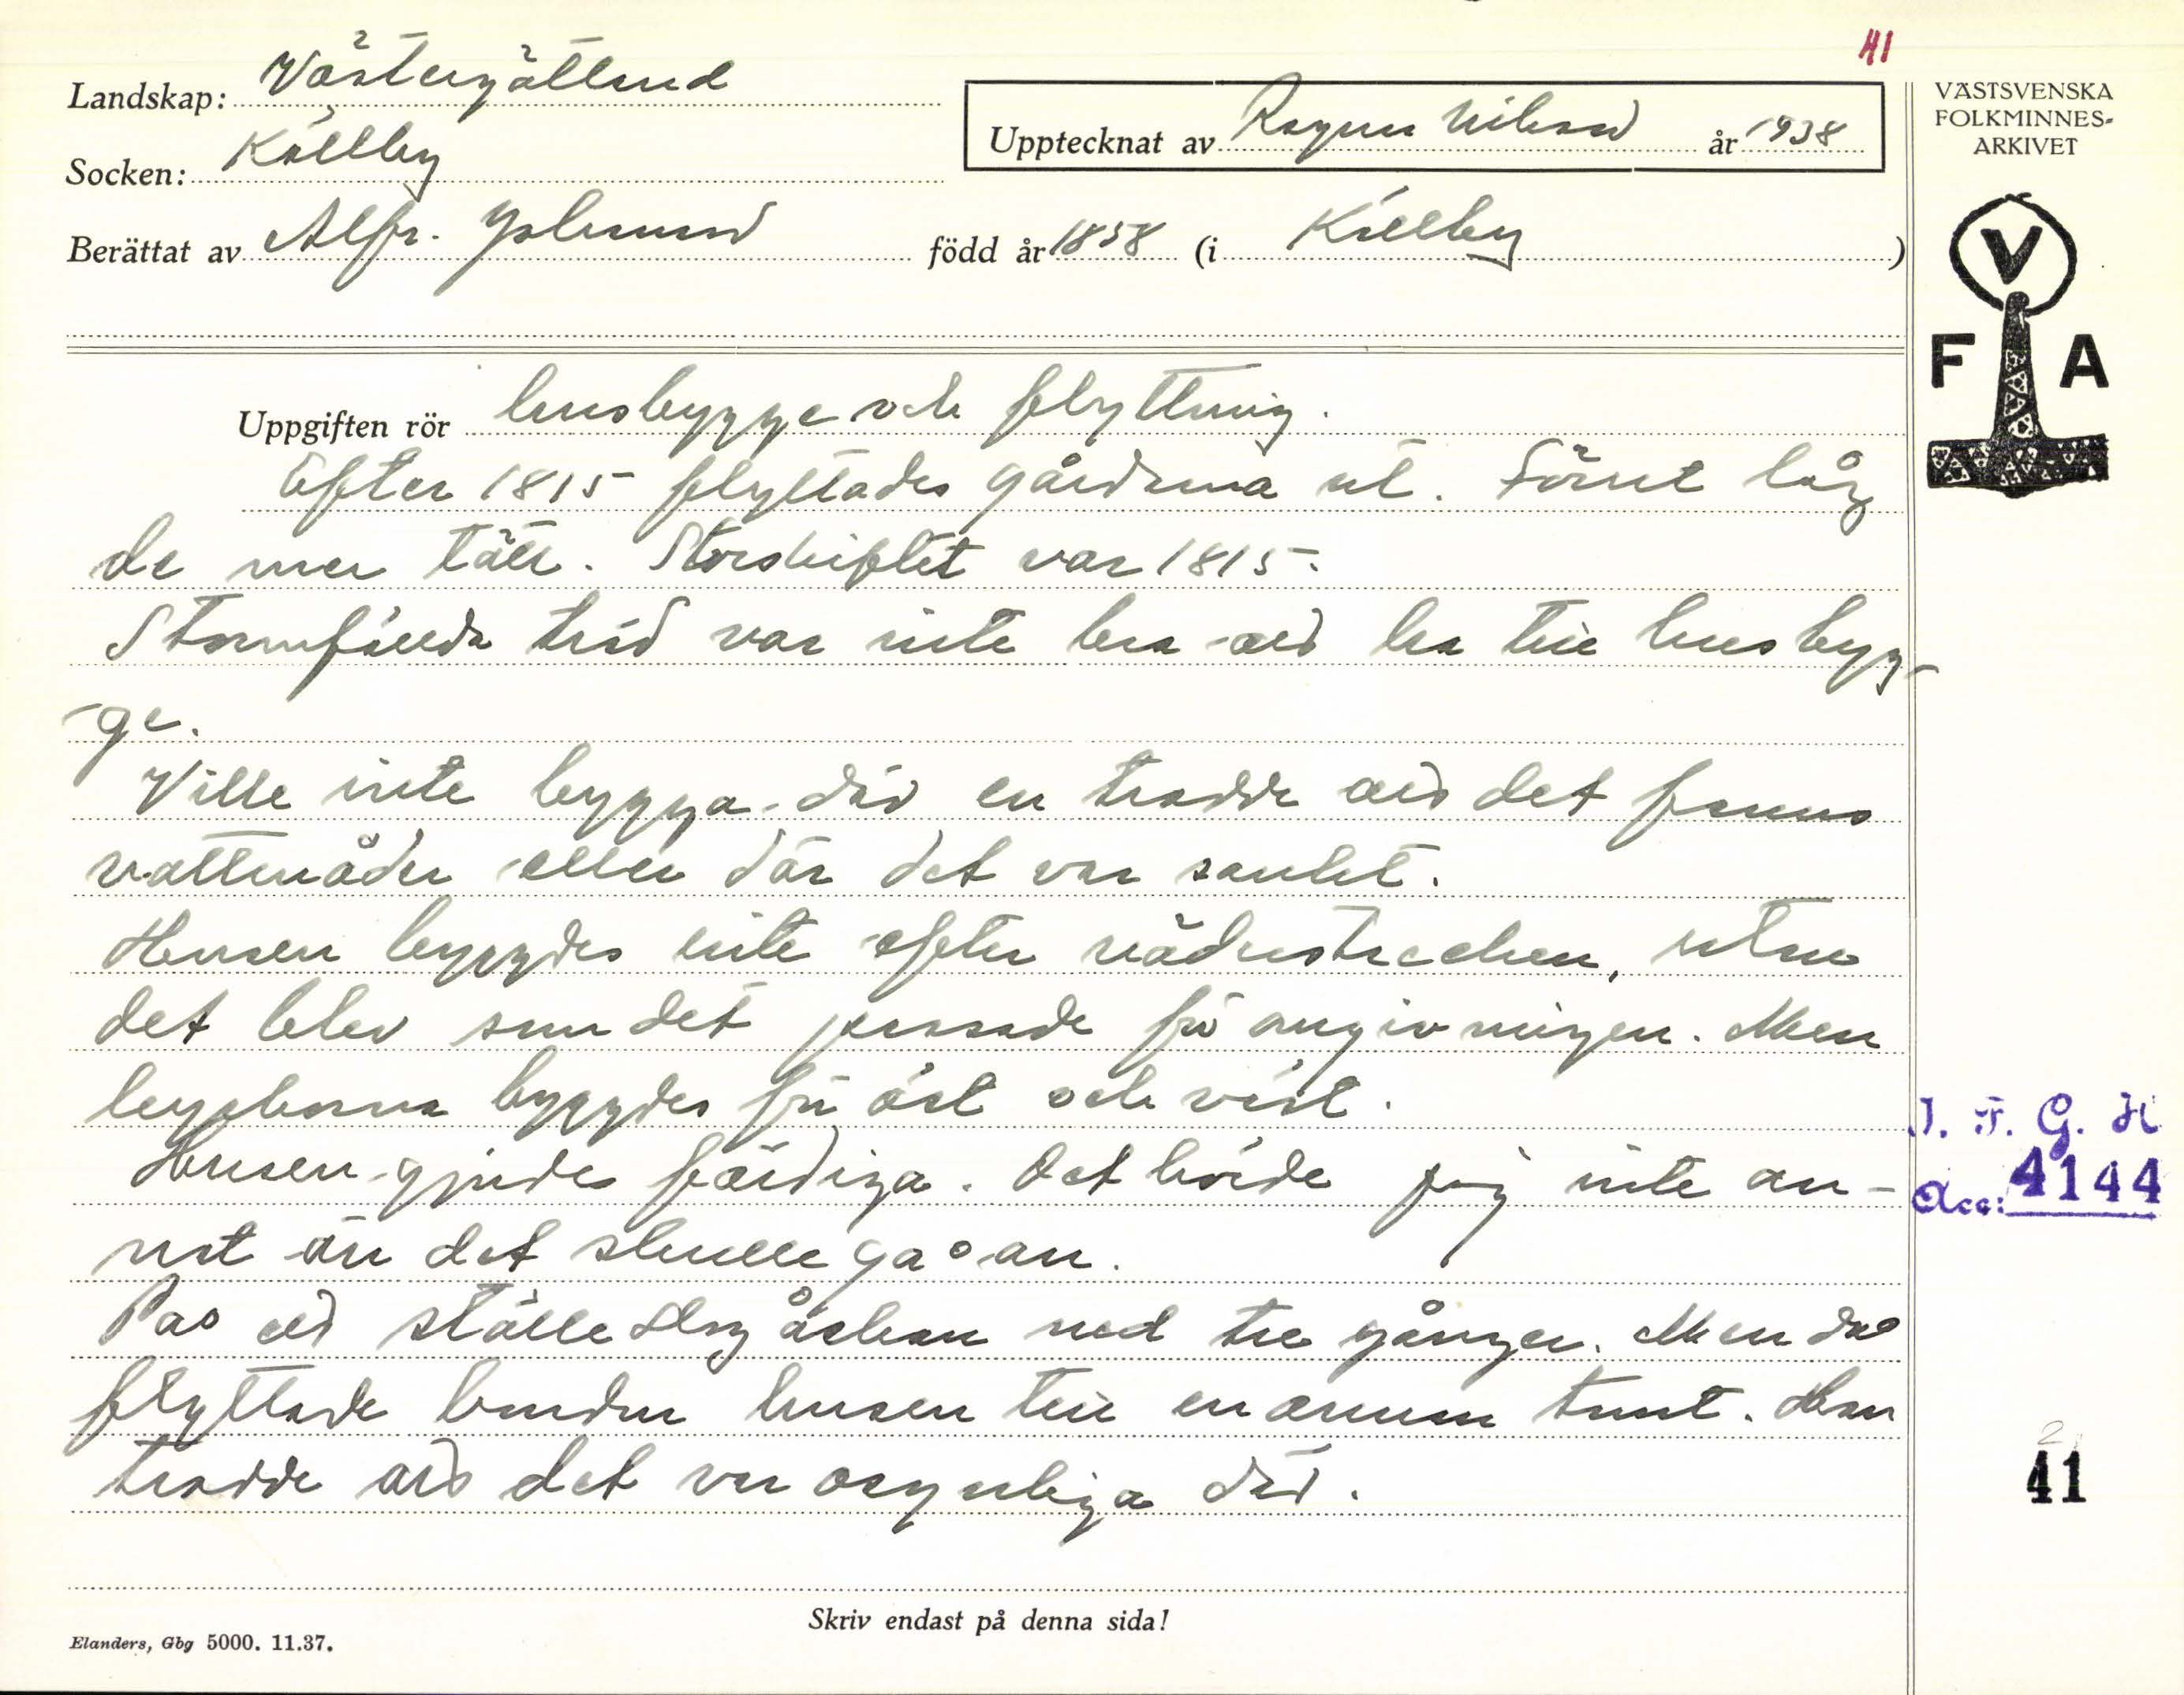 41
Landskap: Västergötland
Socken: Källby
Berättat av Alfr. Johansson född år 1858 (i Källby)
Upptecknat av Ragnar Nilsson år 1938
VÄSTSVENSKA
FOLKMINNES-
ARKIVET
V
F A
Uppgiften rör husbygge och flyttning.
Efter 1815 flyttades gårdarna ut. Förut låg
de mer tätt. Storskiftet var 1815.
Stormfällda träd var inte bra att ha till husbyg-
-ge.
Ville inte bygga där en trodde att det fanns
vattenåder eller där det var sankt.
Husen byggdes inte efter väderstrecken, utan
det blev som det passade för omgivningen. Men
kyrkorna byggdes för öst och väst.
Husen gjordes färdiga. Det hörde jag inte an-
nat än det skulle gå an.
På ett ställe slog åskan ned tre gånger. Men då
flyttade bonden husen till en annan tomt. Han
trodde att det var osynliga där.
I. F. G. H
Acc: 4144
41
Skriv endast på denna sida!
Elanders, Gbg 5000. 11.37.